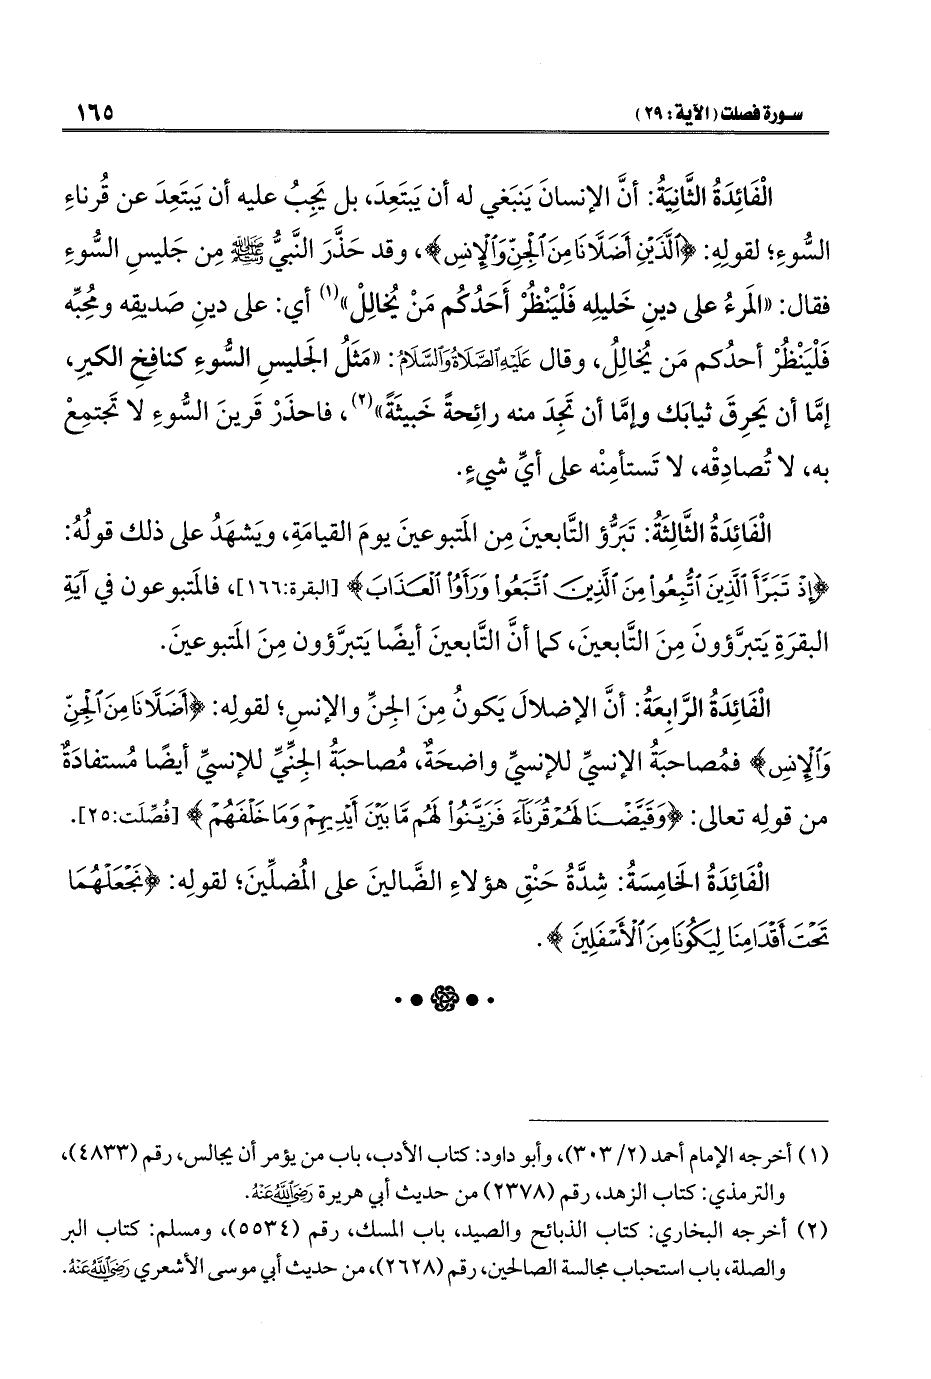 سورة فصلت (الآية: ٢٩)
١٦٥
الْفَائِدَةُ الثَّانِيَةُ: أنَّ الإنسانَ يَنبَغي له أن يَبتَعِدَ، بل يَجِبُ عليه أن يَبتَعِدَ عن قُرناءِ
السُّوءِ؛ لقولِهِ: ﴿ٱلَّذَيْنِ أَضَلَّانَا مِنَ ٱلْجِنِّ وَٱلْإِنسِ﴾، وقد حَذَّرَ النَّبيُّ ﷺ مِن جَليسِ السُّوءِ
فقال: «المَرءُ على دينِ خَليلِه فَلْيَنْظُرْ أَحَدُكُم مَنْ يُخالِلْ»(١) أي: على دينِ صَديقِه ومُحِبِّه
فَلْيَنْظُرْ أحدُكم مَن يُخالِلُ، وقال عَلَيْهِ الصَّلَاةُ وَالسَّلَامُ: «مَثَلُ الجَليسِ السُّوءِ كنافِخِ الكيرِ،
إمَّا أن يَحرِقَ ثيابَك وإمَّا أن تَجِدَ منه رائحةً خَبيثَةً»(٢)، فاحذَرْ قَرينَ السُّوءِ لا تَجتمِعْ
به، لا تُصادِقْه، لا تَستأمِنْه على أيِّ شيءٍ.
الْفَائِدَةُ الثَّالِثَةُ: تَبَرُّؤ التَّابعينَ مِن المَتبوعينَ يومَ القيامَةِ، ويَشهَدُ على ذلك قولُهُ:
﴿إِذْ تَبَرَّأَ ٱلَّذِينَ ٱتُّبِعُوا۟ مِنَ ٱلَّذِينَ ٱتَّبَعُوا۟ وَرَأَوُا۟ ٱلْعَذَابَ﴾ [البقرة:١٦٦]، فالمَتبوعون في آيَةِ
البقرَةِ يَتبرَّؤونَ مِنَ التَّابعينَ، كما أنَّ التَّابعينَ أيضًا يَتبرَّؤون مِنَ المَتبوعينَ.
الْفَائِدَةُ الرَّابِعَةُ: أنَّ الإضلالَ يَكونُ مِنَ الجِنِّ والإنسِ؛ لقولِه: ﴿أَضَلَّانَا مِنَ ٱلْجِنِّ
وَٱلْإِنسِ﴾ فمُصاحبَةُ الإنسيِّ للإنسيِّ واضحَةٌ، مُصاحبَةُ الجِنِّيِّ للإنسيِّ أيضًا مُستفادَةٌ
من قولِه تعالى: ﴿وَقَيَّضْنَا لَهُمْ قُرَنَآءَ فَزَيَّنُوا۟ لَهُم مَّا بَيْنَ أَيْدِيهِمْ وَمَا خَلْفَهُمْ﴾ [فُصِّلَت:٢٥].
الْفَائِدَةُ الخَامِسَةُ: شِدَّةُ حَنْقِ هؤلاءِ الضَّالينَ على المُضلِّينَ؛ لقولِه: ﴿نَجْعَلْهُمَا
تَحْتَ أَقْدَامِنَا لِيَكُونَا مِنَ ٱلْأَسْفَلِينَ﴾.
(١) أخرجه الإمام أحمد (٢/ ٣٠٣)، وأبو داود: كتاب الأدب، باب من يؤمر أن يجالس، رقم (٤٨٣٣)،
والترمذي: كتاب الزهد، رقم (٢٣٧٨) من حديث أبي هريرة رَضِيَ اللَّهُ عَنْهُ.
(٢) أخرجه البخاري: كتاب الذبائح والصيد، باب المسك، رقم (٥٥٣٤)، ومسلم: كتاب البر
والصلة، باب استحباب مجالسة الصالحين، رقم (٢٦٢٨)، من حديث أبي موسى الأشعري رَضِيَ اللَّهُ عَنْهُ.